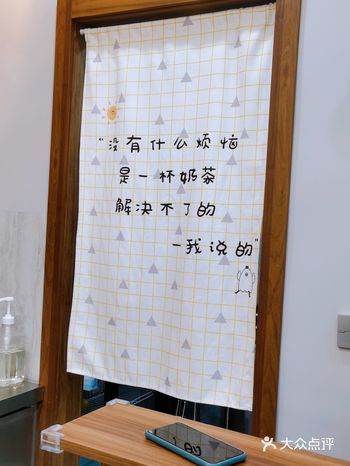 “没有什么烦恼
是一杯奶茶
解决不了的
—我说的”
大众点评